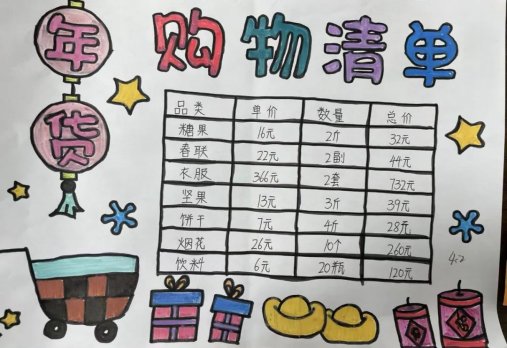 年货
购物清单
品类 单价 数量 总价
糖果 16元 2斤 32元
春联 22元 2副 44元
衣服 366元 2套 732元
坚果 13元 3斤 39元
饼干 7元 4斤 28元
烟花 26元 10个 260元
饮料 6元 20瓶 120元
福